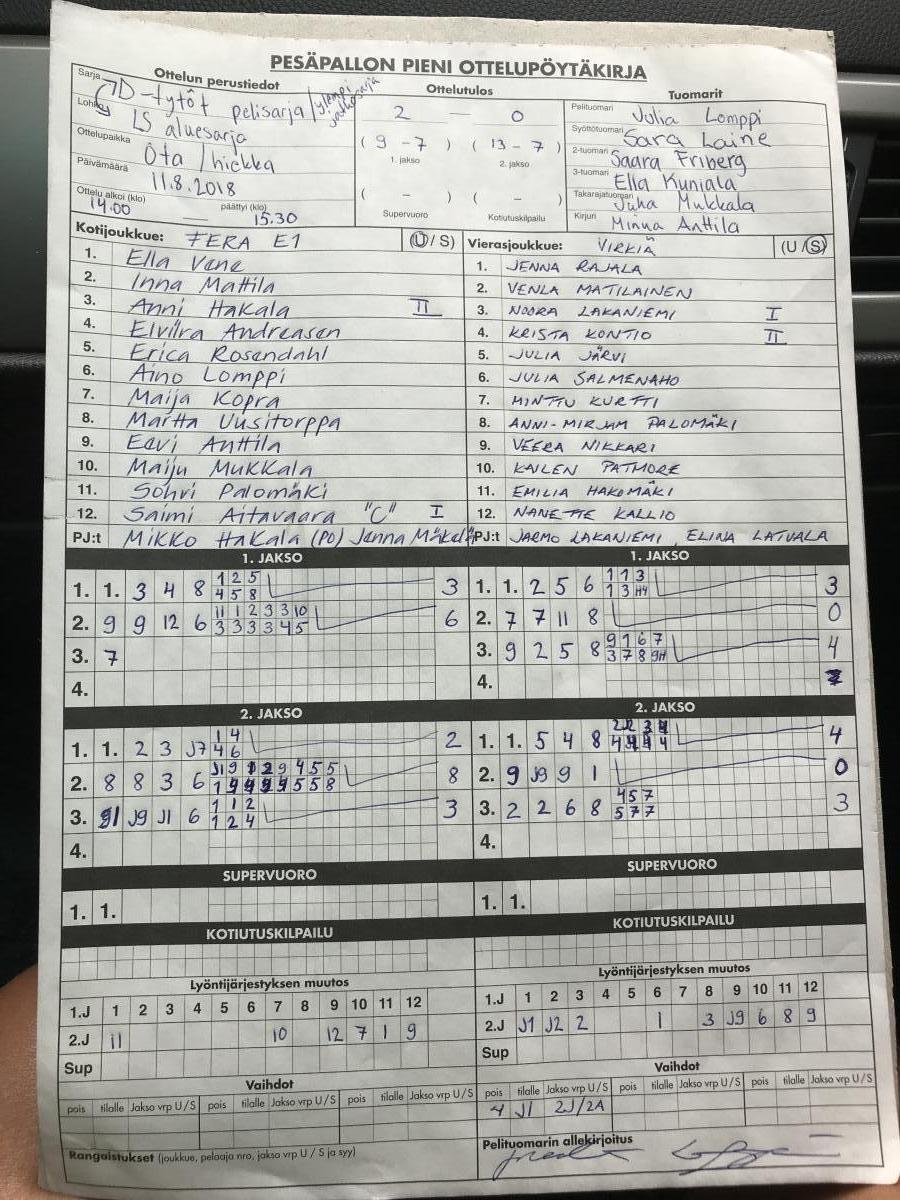 PESÄPALLON PIENI OTTELUPÖYTÄKIRJA
Ottelun perustiedot
Sarja D-tytöt pelisarja / ylempi jatkosarja
Lohko LS aluesarja
Ottelupaikka Ota / hiekka
Päivämäärä 11.8.2018
Ottelu alkoi (klo) 14.00 — päättyi (klo) 15.30
Ottelutulos
2 — 0
( 9 - 7 ) ( 13 - 7 )
1. jakso 2. jakso
( - ) ( - )
Supervuoro Kotiutuskilpailu
Tuomarit
Pelituomari Julia Lomppi
Syöttötuomari Sara Laine
2-tuomari Saara Friberg
3-tuomari Ella Kuniala
Takarajatuomari Juha Mukkala
Kirjuri Minna Anttila
Kotijoukkue: FERA E1 (U / S)
1. Ella Vene
2. Inna Mattila
3. Anni Hakala II
4. Elviira Andreasen
5. Erica Rosendahl
6. Aino Lomppi
7. Maija Kopra
8. Martta Uusitorppa
9. Eevi Anttila
10. Maiju Mukkala
11. Sohvi Palomäki
12. Saimi Aitavaara "C" I
PJ:t Mikko Hakala (PO) Janna Mäkelä
Vierasjoukkue: VIRKIÄ (U / S)
1. JENNA RAJALA
2. VENLA MATILAINEN
3. NOORA LAKANIEMI I
4. KRISTA KONTIO II
5. JULIA JÄRVI
6. JULIA SALMENAHO
7. MINTTU KURTTI
8. ANNI-MIRJAM PALOMÄKI
9. VEERA NIKKARI
10. KAILEN PATMORE
11. EMILIA HAKOMÄKI
12. NANETTE KALLIO
PJ:t JARMO LAKANIEMI, ELINA LATVALA
1. JAKSO
1. 1. 3 4 8 1 2 5 3
4 5 8
2. 9 9 12 6 11 1 2 3 3 10 6
3 3 3 3 4 5
3. 7
4.
1. JAKSO
1. 1. 2 5 6 1 1 3 3
1 3 H4
2. 7 7 11 8 0
3. 9 2 5 8 9 1 6 7 4
3 7 8 9H
4.
2. JAKSO
1. 1. 2 3 J7 1 4 2
4 6
2. 8 8 3 6 8
3. J9 J1 6 1 1 2 3
1 2 4
4.
2. JAKSO
1. 1. 5 4 8 4
2. 9 J9 9 1 0
3. 2 2 6 8 4 5 7 3
5 7 7
4.
SUPERVUORO
1. 1.
SUPERVUORO
1. 1.
KOTIUTUSKILPAILU
KOTIUTUSKILPAILU
Lyöntijärjestyksen muutos
1.J 1 2 3 4 5 6 7 8 9 10 11 12
2.J 11 10 12 7 1 9
Sup
Lyöntijärjestyksen muutos
1.J 1 2 3 4 5 6 7 8 9 10 11 12
2.J J1 J2 2 1 3 J9 6 8 9
Sup
Vaihdot
pois tilalle Jakso vrp U / S pois tilalle Jakso vrp U / S pois tilalle Jakso vrp U / S
Vaihdot
pois tilalle Jakso vrp U / S pois tilalle Jakso vrp U / S pois tilalle Jakso vrp U / S
4 J1 2J/2A
Rangaistukset (joukkue, pelaaja nro, jakso vrp U / S ja syy)
Pelituomarin allekirjoitus